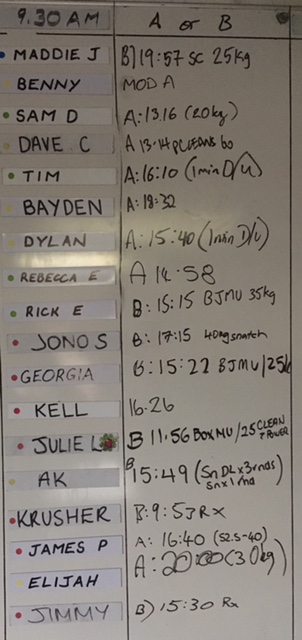 9.30 AM A or B
MADDIE J B) 19:57 SC 25kg
BENNY MOD A
SAM D A: 13.16 (20kg)
DAVE C A 13.14 PCLEANS 60
TIM A: 16:10 (1min D/U)
BAYDEN A: 18:32
DYLAN A: 15:40 (1min D/U)
REBECCA E A 14:58
RICK E B: 15:15 BJMU 35kg
JONO S B: 17:15 40kg snatch
GEORGIA B: 15:22 BJMU/25k
KELL 16.26
JULIE L B 11.56 BOX MU/25 CLEAN + POWER
AK B 15:49 (Sn DL x 3 rnds
sn x 1 rnd)
KRUSHER B: 9:53 Rx
JAMES P A: 16:40 (52.5-40)
ELIJAH A: 20:00 (30kg)
JIMMY B) 15:30 Rx